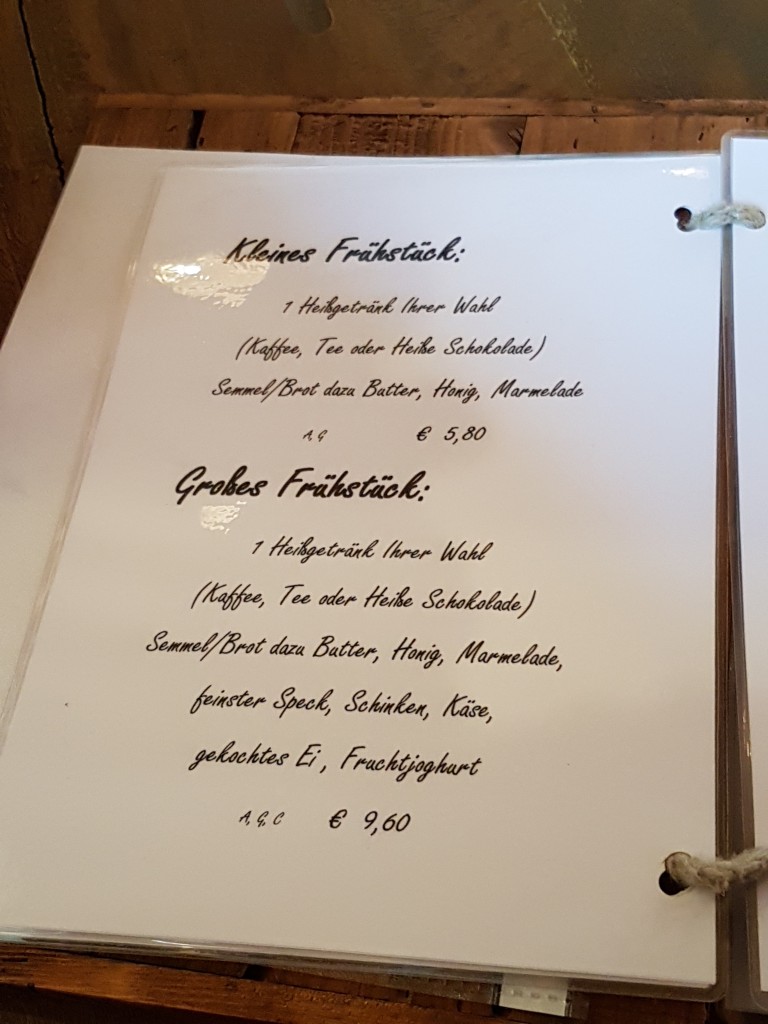 Kleines Frühstück:
1 Heißgetränk Ihrer Wahl
(Kaffee, Tee oder Heiße Schokolade)
Semmel/Brot dazu Butter, Honig, Marmelade
A, G € 5,80
Großes Frühstück:
1 Heißgetränk Ihrer Wahl
(Kaffee, Tee oder Heiße Schokolade)
Semmel/Brot dazu Butter, Honig, Marmelade,
feinster Speck, Schinken, Käse,
gekochtes Ei, Fruchtjoghurt
A, G, C € 9,60